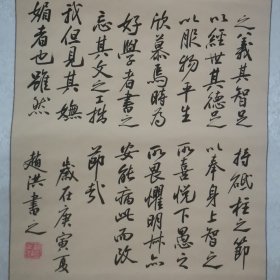 之義其智足
以經世其德足
以服物平生
欣慕焉時為
好學者書之
忘其文之工拙
我但見其嫵
媚者也雖然
持砥柱之節
以奉身上智之
所喜悅下愚之
所畏懼明林亦
安能病此而改
節哉
歲在庚寅夏
趙洪書之